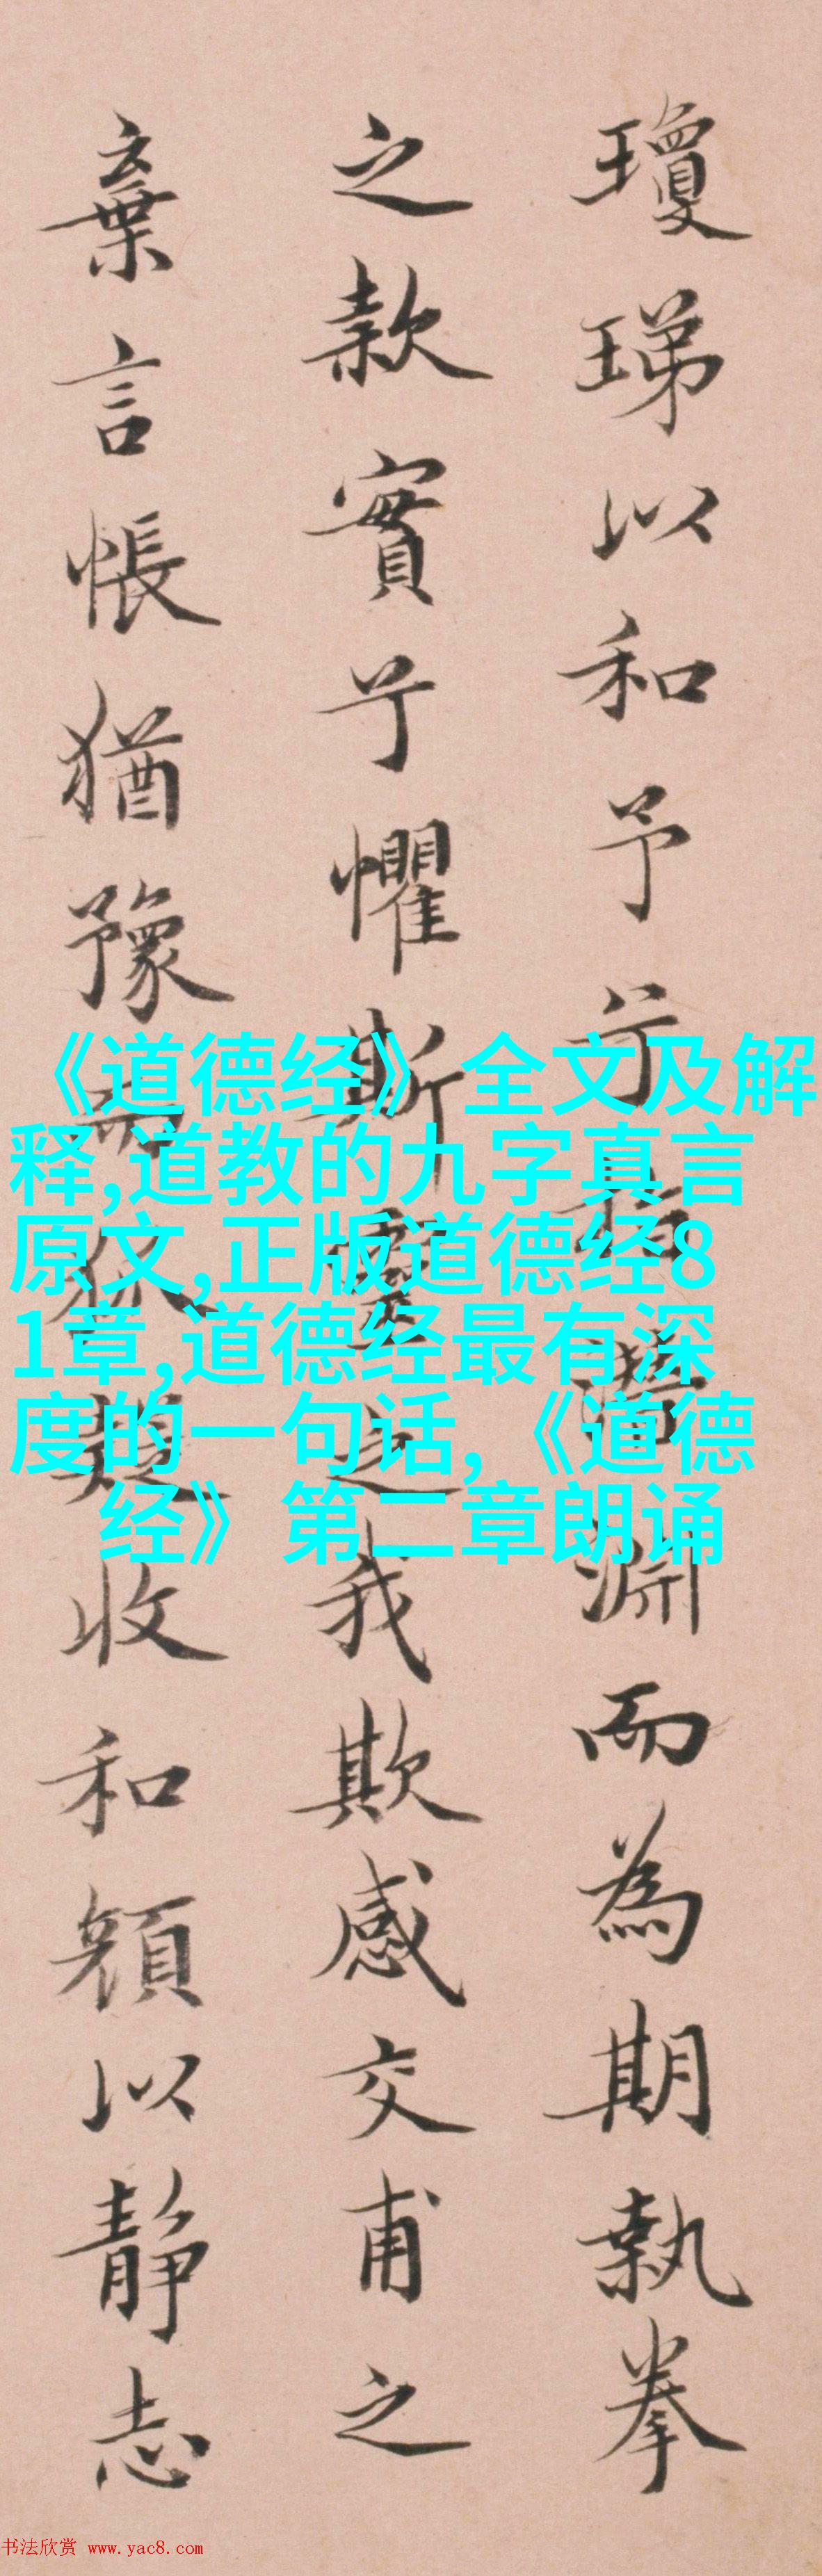 瓊珶以和予兮指潛淵而為期執拳
之款實兮懼斯靈之我欺感交甫之
棄言悵猶豫而狐疑收和顏以静志
《道德经》全文及解
释,道教的九字真言
原文,正版道德经8
1章,道德经最有深
度的一句话,《道德
经》第二章朗诵
书法欣赏 www.yac8.com